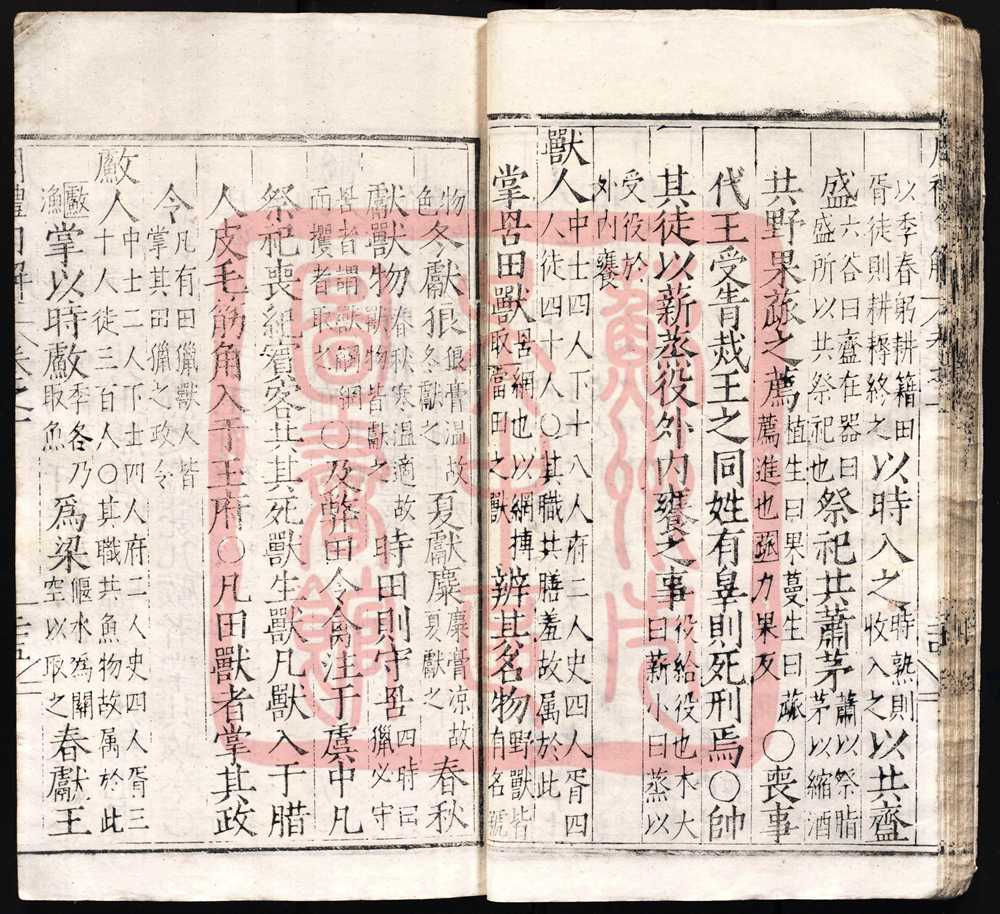 以季春躬耕籍田
胥徒則耕耨終之以時入之時熟則收入之以共齍
盛六谷曰齍在器曰盛盛所以共祭祀也祭祀共蕭茅蕭以祭脂茅以縮酒
共野果蓏之薦植生曰果蔓生曰蓏薦進也○喪事
代王受眚烖王之同姓有辠則死刑焉○帥
其徒以薪蒸役外內饔之事役給役也木大曰薪小曰蒸以
受役於外內饔
獸人中士四人下士八人府二人史四人胥四人徒四十人○其職共膳羞故属於此
掌罟田獸罟網也以網搏取當田之獸辨其名物野獸皆有名號
物冬獻狼狼膏温故冬獻之夏獻麋麋膏凉故夏獻之春秋
獻獸物獸物皆獻之春秋寒温適故時田則守罟四時田獵必守
罟者謂獸觸網而攫者取之○及弊田令禽注于虞中凡
祭祀喪紀賓客共其死獸生獸凡獸入于腊
人皮毛筋角入于王府○凡田獸者掌其政
令凡有田獵獸人皆掌其田獵之政令
䱷人中士二人下士四人府二人史四人胥三十人徒三百人○其職共魚物故属於此
掌以時䱷為梁季冬乃漁取魚偃水為關空以取之春獻王